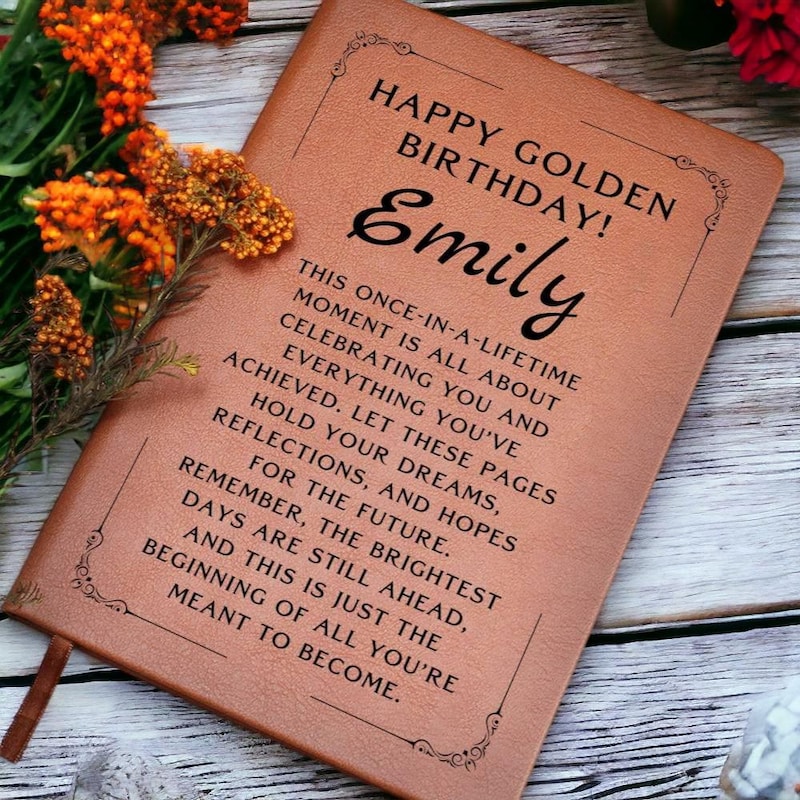 HAPPY GOLDEN
BIRTHDAY!
Emily
THIS ONCE-IN-A-LIFETIME
MOMENT IS ALL ABOUT
CELEBRATING YOU AND
EVERYTHING YOU'VE
ACHIEVED. LET THESE PAGES
HOLD YOUR DREAMS,
REFLECTIONS, AND HOPES
FOR THE FUTURE.
REMEMBER, THE BRIGHTEST
DAYS ARE STILL AHEAD,
AND THIS IS JUST THE
BEGINNING OF ALL YOU'RE
MEANT TO BECOME.